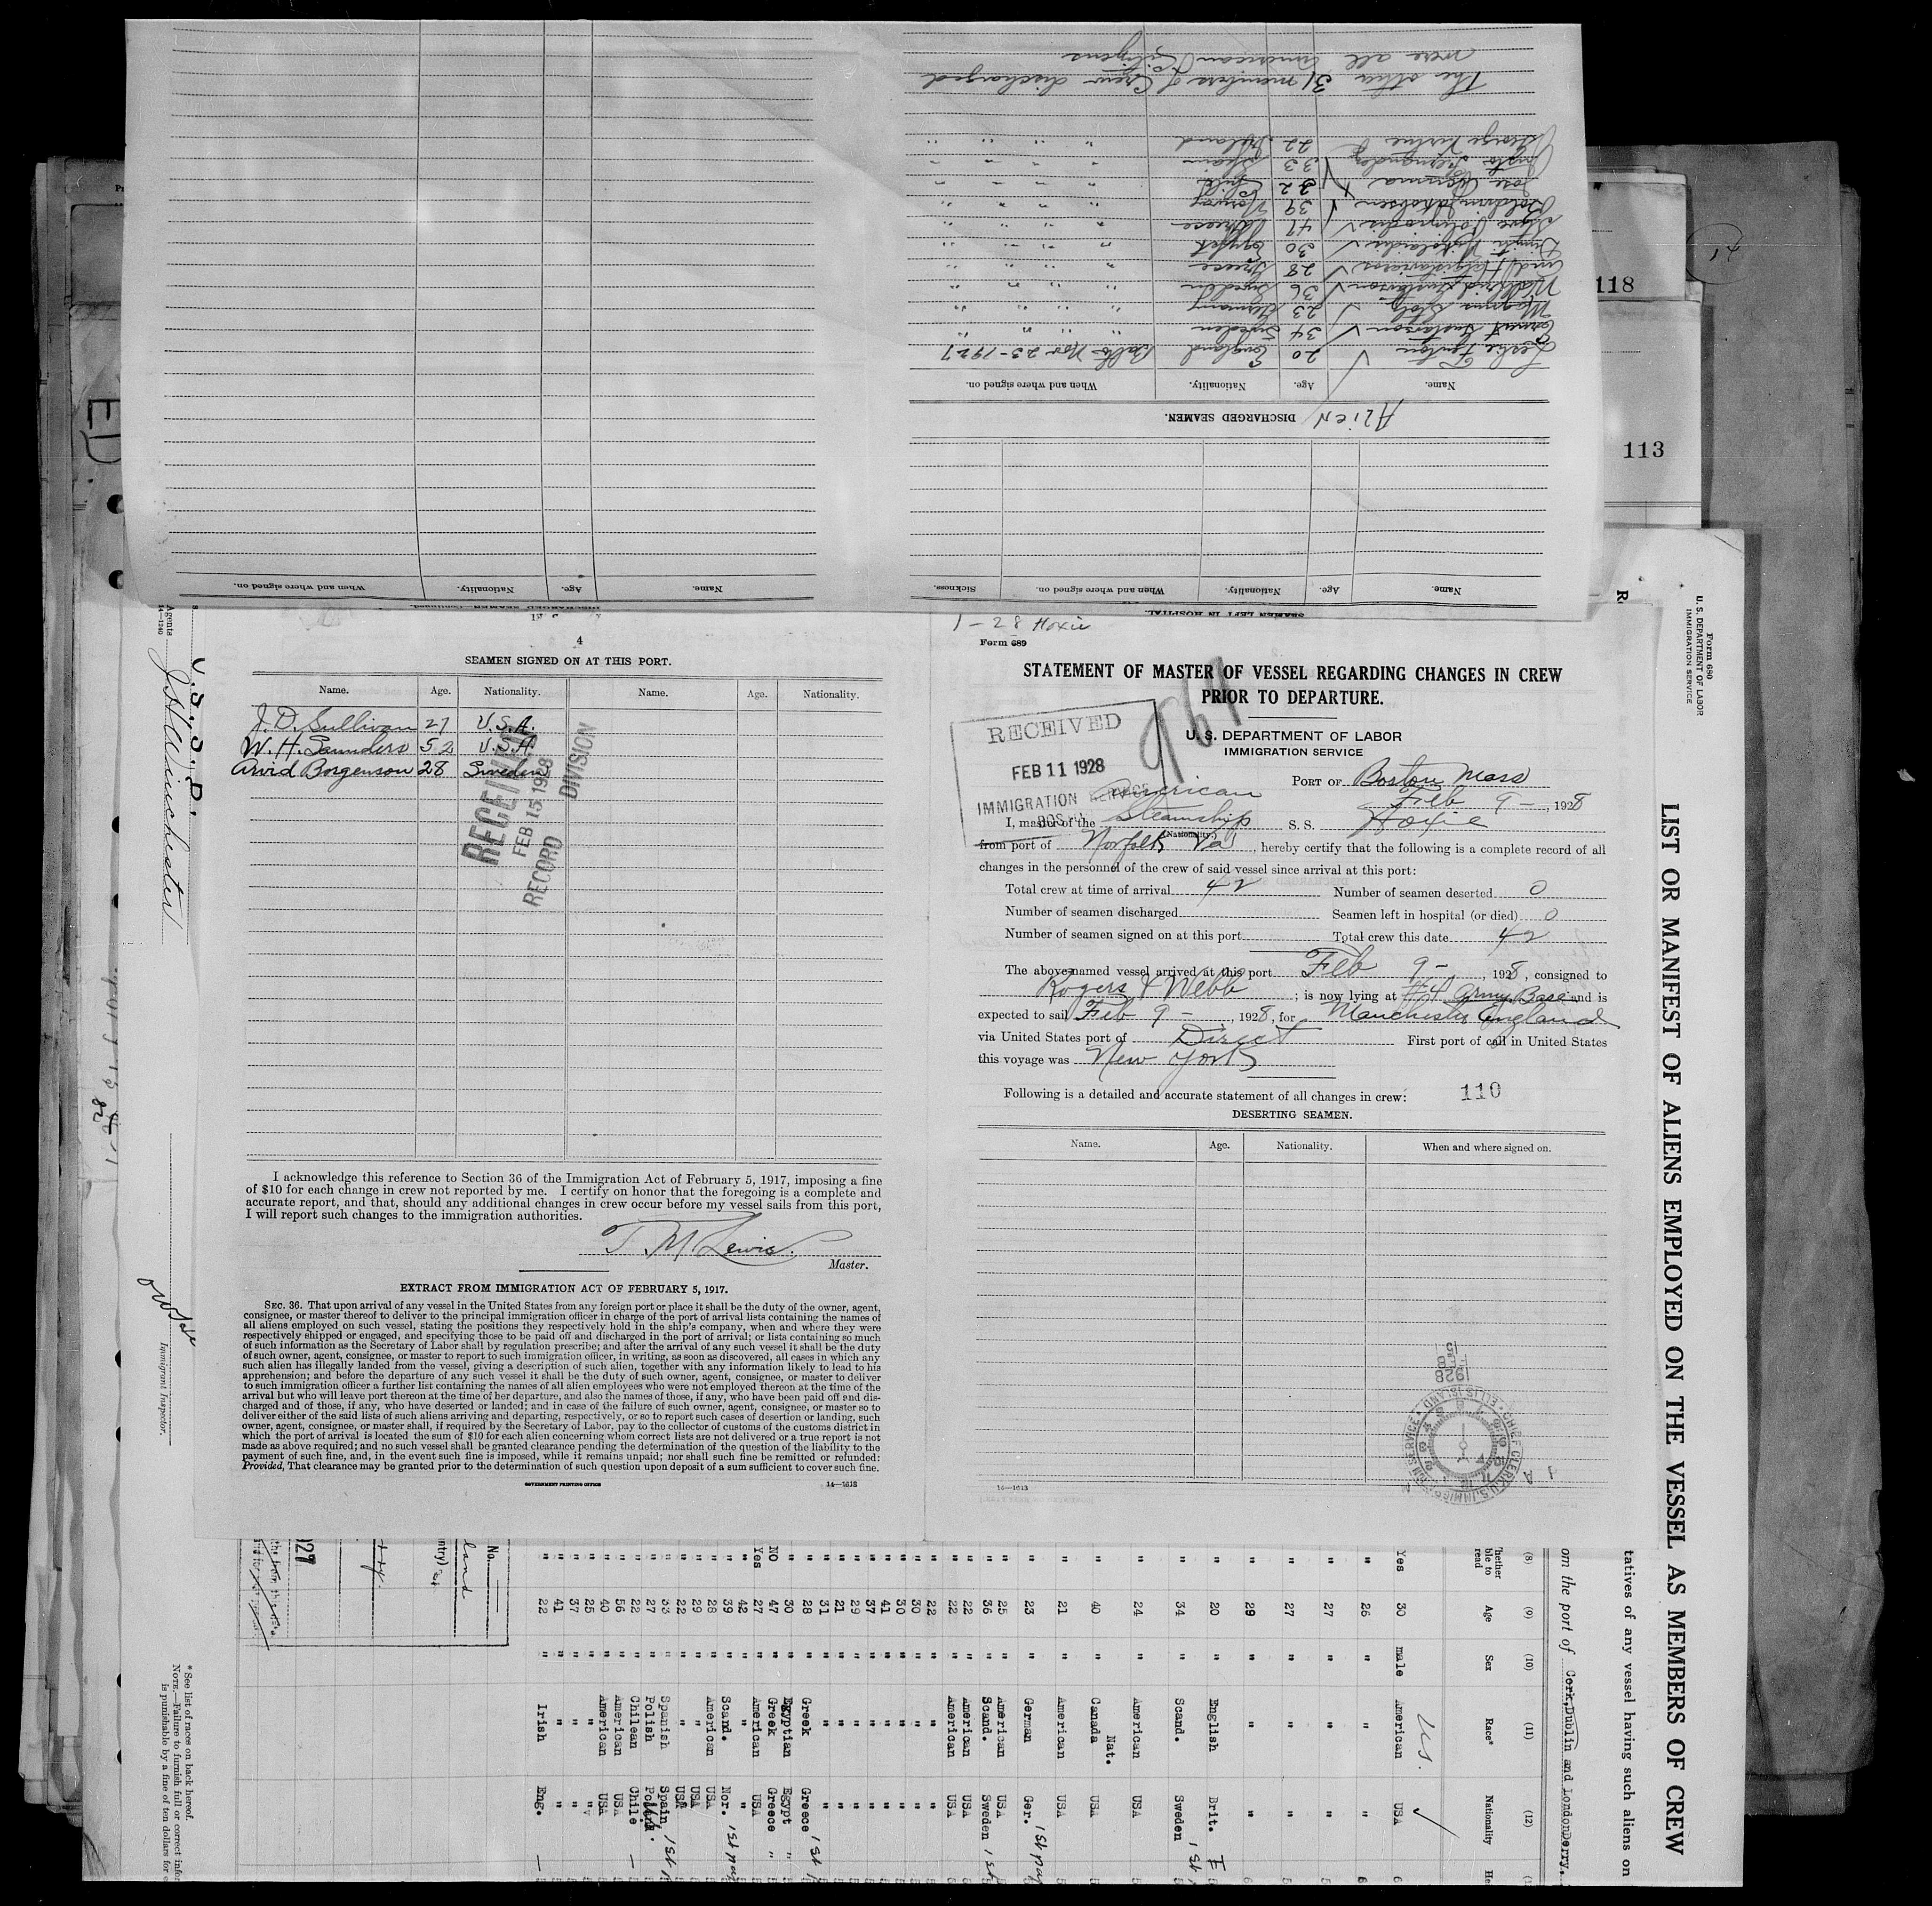 DISCHARGED SEAMEN.
ALIEN
Name. Age. Nationality. When and where signed on.
Leslie Fenton 20 England Balto Nov 23-1927
Ernest Gustafson 34 Sweden " " "
Magnus 23 Germany " " "
36 Sweden " " "
28 Greece " " "
Dimitri 30 Egypt " " "
41 Greece " " "
39 Norway " " "
Jose 32 Chile " " "
33 Spain " " "
George 22 Ireland " " "
The other 31 members of Crew discharged
were all American Citizens
SEAMEN LEFT IN HOSPITAL.
Name. Age. Nationality. When and where signed on. Sickness.
Name. Age. Nationality. When and where signed on.
118
113
14
4
SEAMEN SIGNED ON AT THIS PORT.
Name. Age. Nationality. Name. Age. Nationality.
J. D. Sullivan 27 U.S.A.
W. H. Saunders 52 U.S.A.
Arvid Borgenson 28 Sweden
RECEIVED
FEB 15 1928
RECORD DIVISION
I acknowledge this reference to Section 36 of the Immigration Act of February 5, 1917, imposing a fine
of $10 for each change in crew not reported by me. I certify on honor that the foregoing is a complete and
accurate report, and that, should any additional changes in crew occur before my vessel sails from this port,
I will report such changes to the immigration authorities.
T. M. Lewis.
Master.
EXTRACT FROM IMMIGRATION ACT OF FEBRUARY 5, 1917.
SEC. 36. That upon arrival of any vessel in the United States from any foreign port or place it shall be the duty of the owner, agent,
consignee, or master thereof to deliver to the principal immigration officer in charge of the port of arrival lists containing the names of
all aliens employed on such vessel, stating the positions they respectively hold in the ship's company, when and where they were
respectively shipped or engaged, and specifying those to be paid off and discharged in the port of arrival; or lists containing so much
of such information as the Secretary of Labor shall by regulation prescribe; and after the arrival of any such vessel it shall be the duty
of such owner, agent, consignee, or master to report to such immigration officer, in writing, as soon as discovered, all cases in which any
such alien has illegally landed from the vessel, giving a description of such alien, together with any information likely to lead to his
apprehension; and before the departure of any such vessel it shall be the duty of such owner, agent, consignee, or master to deliver
to such immigration officer a further list containing the names of all alien employees who were not employed thereon at the time of the
arrival but who will leave port thereon at the time of her departure, and also the names of those, if any, who have been paid off and dis-
charged and of those, if any, who have deserted or landed; and in case of the failure of such owner, agent, consignee, or master so to
deliver either of the said lists of such aliens arriving and departing, respectively, or so to report such cases of desertion or landing, such
owner, agent, consignee, or master shall, if required by the Secretary of Labor, pay to the collector of customs of the customs district in
which the port of arrival is located the sum of $10 for each alien concerning whom correct lists are not delivered or a true report is not
made as above required; and no such vessel shall be granted clearance pending the determination of the question of the liability to the
payment of such fine, and, in the event such fine is imposed, while it remains unpaid; nor shall such fine be remitted or refunded:
Provided, That clearance may be granted prior to the determination of such question upon deposit of a sum sufficient to cover such fine.
GOVERNMENT PRINTING OFFICE
14—1613
1-28 Hoxie
Form 689
STATEMENT OF MASTER OF VESSEL REGARDING CHANGES IN CREW
PRIOR TO DEPARTURE.
961
U. S. DEPARTMENT OF LABOR
IMMIGRATION SERVICE
RECEIVED
FEB 11 1928
IMMIGRATION SERVICE
BOSTON
PORT OF Boston Mass
Feb 9 -, 1928
I, master of the American Steamship S. S. Hoxie
(Nationality.)
from port of Norfolk Va, hereby certify that the following is a complete record of all
changes in the personnel of the crew of said vessel since arrival at this port:
Total crew at time of arrival 42 Number of seamen deserted 0
Number of seamen discharged Seamen left in hospital (or died) 0
Number of seamen signed on at this port Total crew this date 42
The above-named vessel arrived at this port Feb 9 -, 1928, consigned to
Rogers & Webb; is now lying at #4 Army Base and is
expected to sail Feb 9 -, 1928, for Manchester England
via United States port of Direct First port of call in United States
this voyage was New York
Following is a detailed and accurate statement of all changes in crew: 110
DESERTING SEAMEN.
Name. Age. Nationality. When and where signed on.
14—1613
CHIEF CLERK U.S. IMMIGRATION SERVICE ELLIS ISLAND
1928
Form 680
U. S. DEPARTMENT OF LABOR
IMMIGRATION SERVICE
LIST OR MANIFEST OF ALIENS EMPLOYED ON THE VESSEL AS MEMBERS OF CREW
tatives of any vessel having such aliens on
om the port of Cork, Dublin and LondonDerry.
(8) (9) (10) (11) (12)
Whether able to read Age Sex Race* Nationality
Yes 30 male American USA
U.S.
" 26 " " "
" 27 " " "
" 27 " " "
" 29 " " "
" 20 " English Brit.
" 34 " Scand. Sweden
" 24 " American USA
" 40 " Canada Nat. USA
" 21 " American USA
" 23 " German Ger. 1st pay
" 25 " American USA
" 36 " Scand. Sweden
" 22 " American USA
" 22 " American USA
" 22 " " "
" 30 " " "
" 30 " " "
" 41 " " "
" 37 " " "
" 29 " " "
" 21 " " "
" 31 " " "
" 28 " Greek Greece
" 30 " Egyptian Egypt
NO 47 " Greek Greece
Yes 27 " American USA
" 42 " " "
" 39 " Scand. Nor. 1st pay
" 28 " American USA
" 29 " " USA
" 22 " " USA
" 33 " Spanish Spain
" 27 " Polish
" 22 " Chilean Chile
" 56 " American USA
" 40 " American USA
" 25 " " "
" 37 " " "
" 41 " " "
" 22 " Irish Eng.
*See list of races on back hereof.
NOTE.—Failure to furnish full or correct infor
is punishable by a fine of ten dollars for
Immigrant Inspector.
Agents J. H. Winchester
14—1240
U.S.S.B.